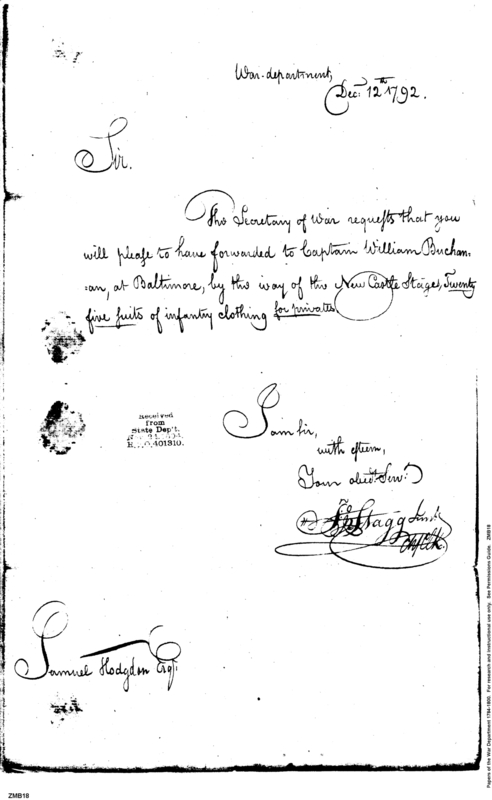 War-department,
Dec.r 12th 1792.
Sir.
The Secretary of War requests that you
will please to have forwarded to Captain William Buchan=
=an, at Baltimore, by the way of the New Castle Stages, Twenty
five suits of infantry clothing for privates.
Received
from
State Dep't.
401310.
I am sir,
with esteem,
Your obed.t Serv.t
Jno Stagg Jun.r
Ch. Clk.
Samuel Hodgdon Esq.r
Papers of the War Department 1784-1800. For research and instructional use only. See Permissions Guide. ZMB18
ZMB18